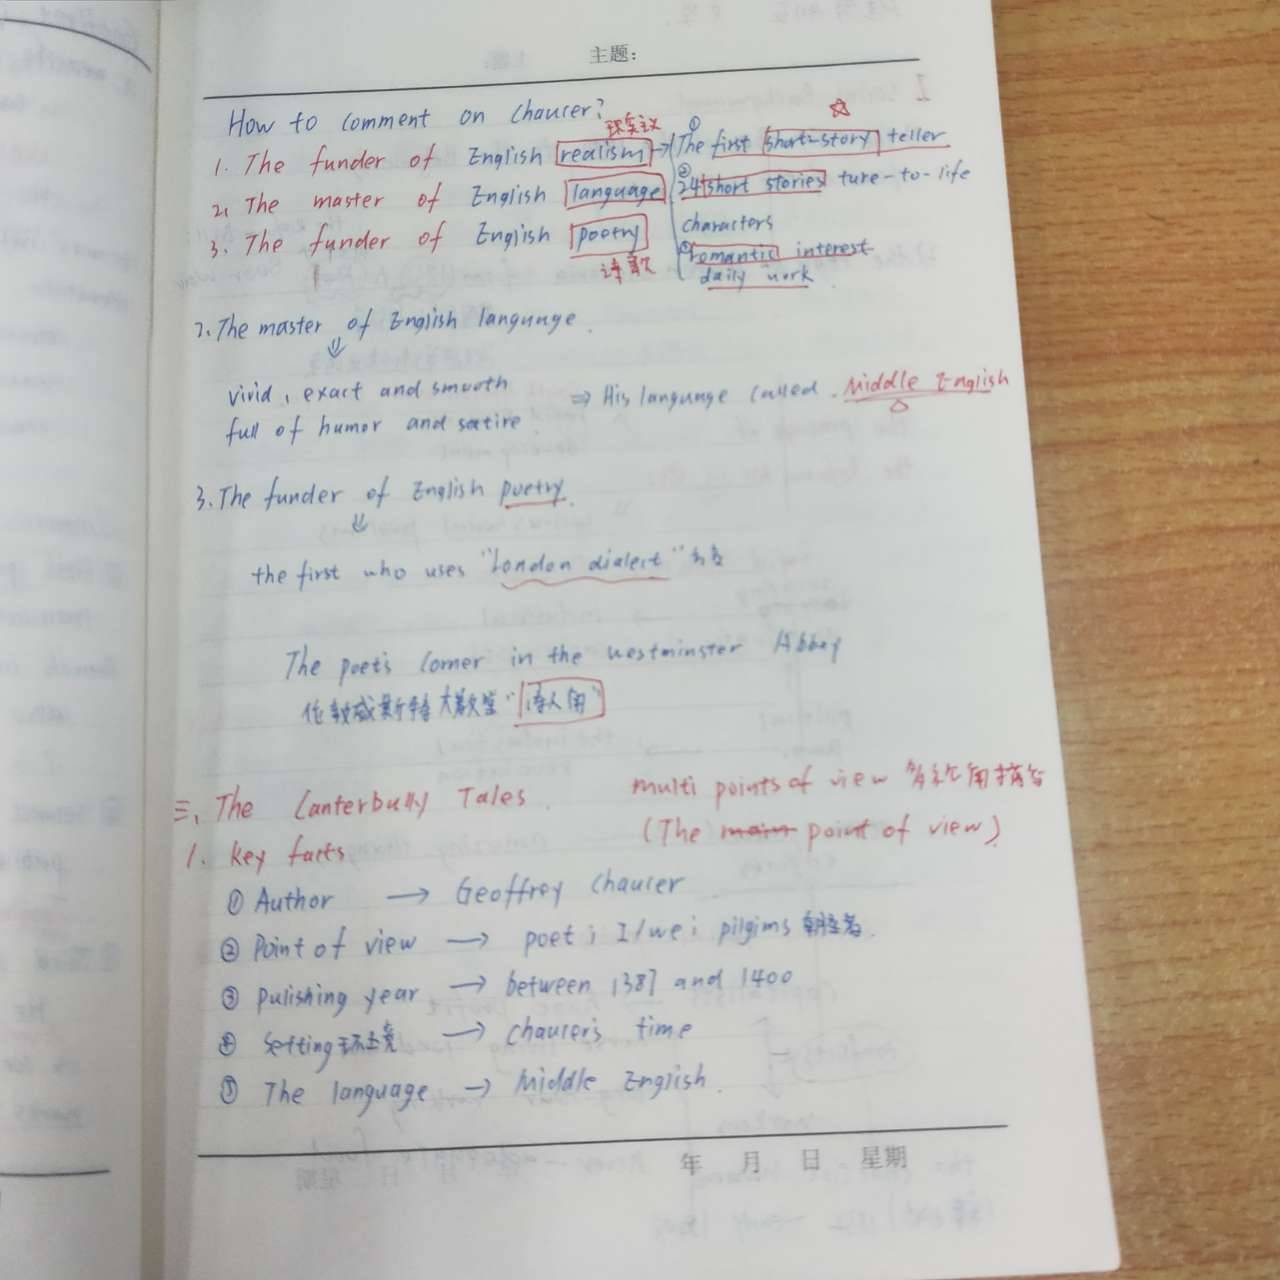 主题:
How to comment on Chaucer?
现实主义
1. The funder of English realism → ① The first short-story teller
2. The master of English language ② 24 short stories ture-to-life
characters
3. The funder of English poetry ③ romantic interest
诗歌 daily work
2. The master of English langunge.
vivid, exact and smooth ⇒ His langunge called. Middle English
full of humor and satire
3. The funder of English puetry.
the first who uses "London dialect"
The poet's Corner in the westminster Abbey
伦敦威斯特大教堂"诗人角"
三、The Canterbully Tales. multi points of view
(The main point of view)
1. key facts
① Author → Geoffrey Chaucer
② Point of view → poet; I/we; pilgims 朝圣者.
③ pulishing year → between 1387 and 1400
④ Setting 环境 → Chaucer's time
⑤ The language → Middle English.
年 月 日 星期